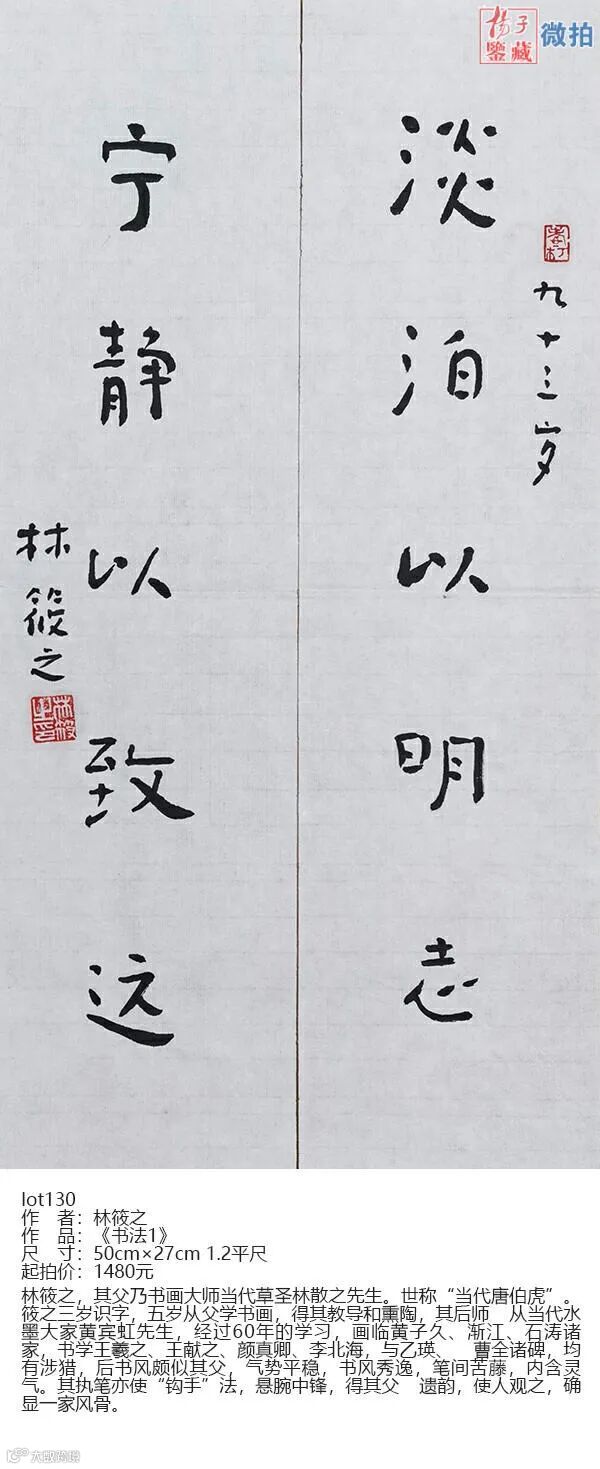 杨子
鉴藏
微拍
九十三岁
淡泊以明志
宁静以致远
林筱之
lot130
作 者：林筱之
作 品：《书法1》
尺 寸：50cm×27cm 1.2平尺
起拍价：1480元
林筱之，其父乃书画大师当代草圣林散之先生。世称“当代唐伯虎”。
筱之三岁识字，五岁从父学书画，得其教导和熏陶，其后师 从当代水
墨大家黄宾虹先生，经过60年的学习，画临黄子久、渐江、石涛诸
家，书学王羲之、王献之、颜真卿、李北海，与乙瑛、 曹全诸碑，均
有涉猎，后书风颇似其父，气势平稳，书风秀逸，笔间苦藤，内含灵
气。其执笔亦使“钩手”法，悬腕中锋，得其父 遗韵，使人观之，确
显一家风骨。